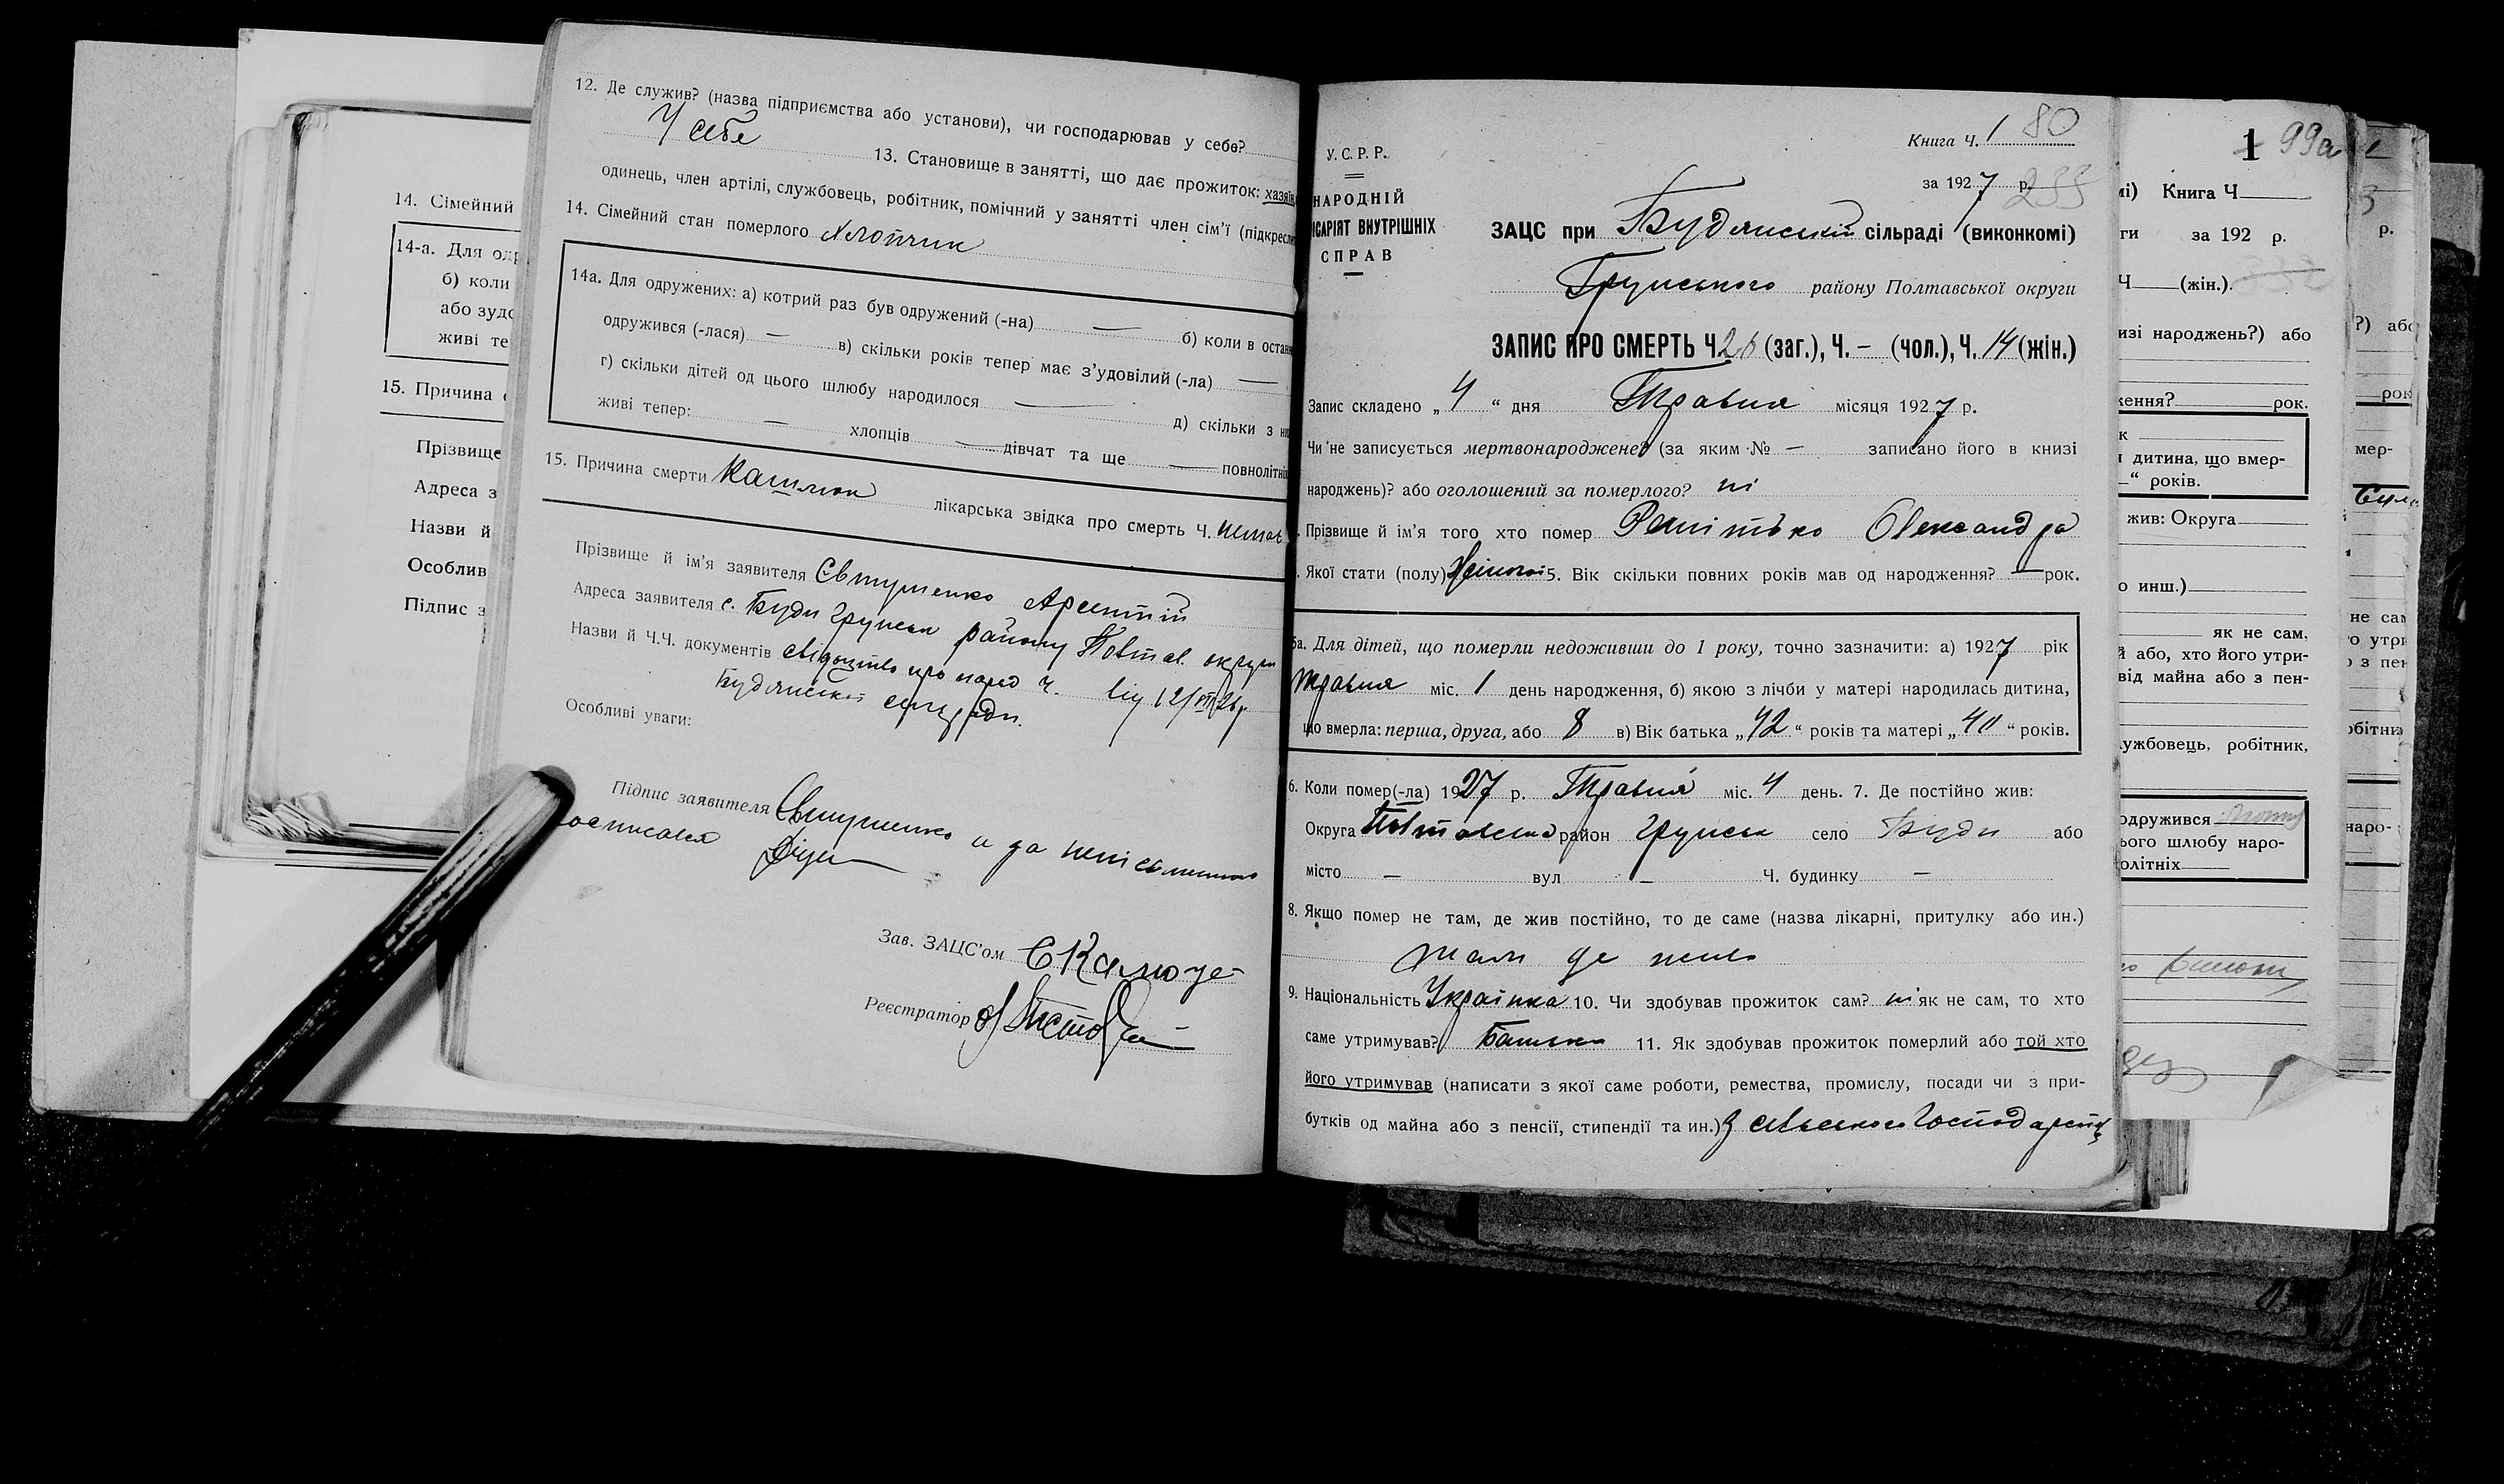 12. Де служив? (назва підприємства або установи), чи господарював у себе?
У себе 13. Становище в занятті, що дає прожиток: хазяїн,
одинець, член артілі, службовець, робітник, помічний у занятті член сім’ї (підкреслит
14. Сімейний стан померлого Хлопчик
14а. Для одружених: а) котрий раз був одружений (-на) — б) коли в останн
одружився (-лася) — в) скільки років тепер має з’удовілий (-ла) —
г) скільки дітей од цього шлюбу народилося — д) скільки з ни
живі тепер: — хлопців — дівчат та ще — повнолітніх
15. Причина смерти Кашлюк лікарська звідка про смерть Ч. немає
Прізвище й ім’я заявителя Євтушенко Арсентій
Адреса заявителя с. Буди Грунськ району Полтав. округи
Назви й Ч.Ч. документів свідоцтво про народ ч. від 12/VIII 26р
Будянської сільради.
Особливі уваги:
Підпис заявителя Євтушенко а за неписьменного
росписався
Зав. ЗАЦС’ом
Реєстратор
14. Сімейний
14-а. Для одр
б) коли
або зудо
живі те
15. Причина с
Прізвище
Адреса з
Назви й
Особлив
Підпис з
Книга Ч. 1 80
У.С.Р.Р.
за 1927 р. 233
НАРОДНІЙ
ІСАРІЯТ ВНУТРІШНІХ
СПРАВ
ЗАЦС при Будянській сільраді (виконкомі)
Грунського району Полтавської округи
ЗАПИС ПРО СМЕРТЬ Ч. 26 (заг.), Ч. — (чол.), Ч. 14 (жін.)
Запис складено „4“ дня Травня місяця 1927 р.
Чи не записується мертвонароджене? (за яким № — записано його в книзі
народжень)? або оголошений за померлого? ні
Прізвище й ім’я того хто помер Решітько Олександра
Якої стати (полу) Жіночої 5. Вік скільки повних років мав од народження? — рок.
5а. Для дітей, що померли недоживши до 1 року, точно зазначити: а) 1927 рік
травня міс. 1 день народження, б) якою з лічби у матері народилась дитина,
що вмерла: перша, друга, або 8 в) Вік батька „42“ років та матері „40“ років.
6. Коли помер(-ла) 1927 р. Травня міс. 4 день. 7. Де постійно жив:
Округа Полтавська район Грунськ село Буди або
місто — вул — Ч. будинку —
8. Якщо помер не там, де жив постійно, то де саме (назва лікарні, притулку або ин.)
там де жило
9. Національність Українка 10. Чи здобував прожиток сам? ні як не сам, то хто
саме утримував? Батько 11. Як здобував прожиток померлий або той хто
його утримував (написати з якої саме роботи, ремества, промислу, посади чи з при-
бутків од майна або з пенсії, стипендії та ин.) З сільського господарства
1 99а
мі) Книга Ч
ги за 192 р.
Ч (жін.).
изі народжень?) або
ження? рок.
к
я дитина, що вмер-
“ років.
жив: Округа
о инш.)
як не сам,
й або, хто його утри-
від майна або з пен-
ужбовець, робітник,
одружився
ього шлюбу наро-
олітніх
р.
?) або
рок
мер-
не сам
о утри
з пен
обітник
наро-